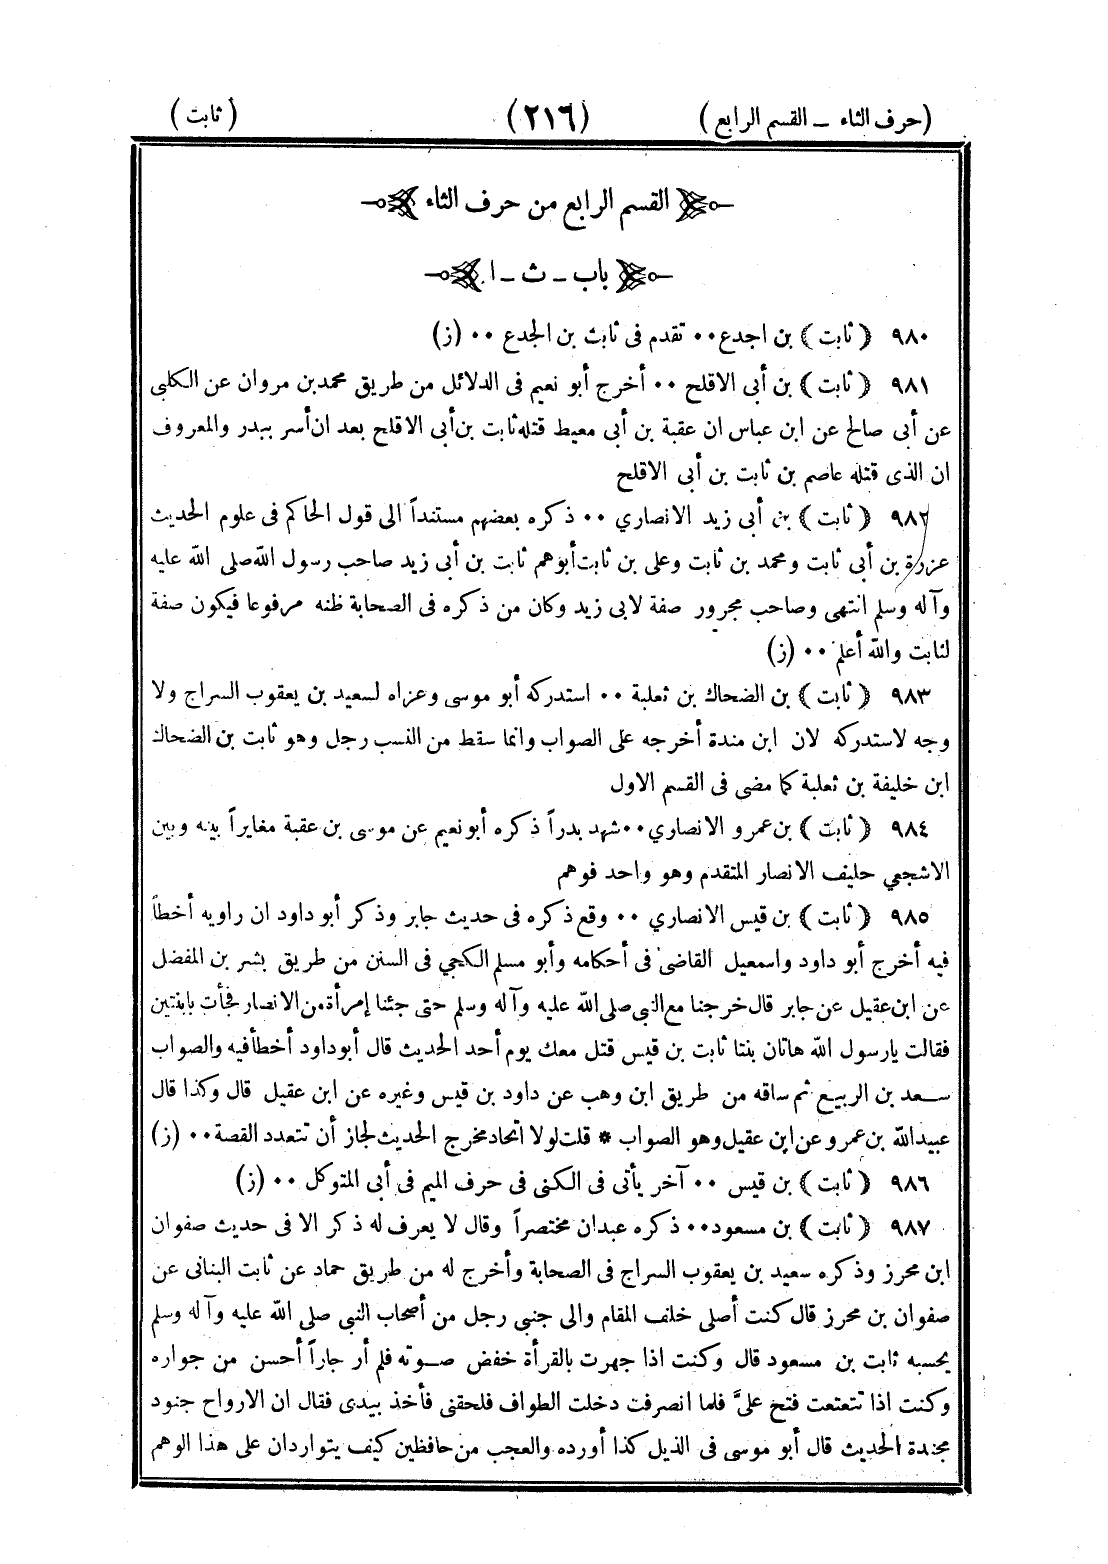 (حرف الثاء ــ القسم الرابع) (٢١٦) (ثابت)
القسم الرابع من حرف الثاء
باب ــ ث ــ ا
٩٨٠ (ثابت) بن اجدع٠٠ تقدم فى ثابت بن الجدع ٠٠ (ز)
٩٨١ (ثابت) بن أبى الاقلح ٠٠ أخرج أبو نعيم فى الدلائل من طريق محمدبن مروان عن الكلبى
عن أبى صالح عن ابن عباس ان عقبة بن أبى معيط قتله ثابت بن أبى الاقلح بعد ان أسر ببدر والمعروف
ان الذى قتله عاصم بن ثابت بن أبى الاقلح
٩٨٢ (ثابت) بن أبى زيد الانصاري ٠٠ ذكره بعضهم مستنداً الى قول الحاكم فى علوم الحديث
عزرة بن أبى ثابت ومحمد بن ثابت وعلى بن ثابت أبوهم ثابت بن أبى زيد صاحب رسول الله صلى الله عليه
وآله وسلم انتهى وصاحب مجرور صفة لابى زيد وكان من ذكره فى الصحابة ظنه مرفوعا فيكون صفة
لثابت والله أعلم ٠٠ (ز)
٩٨٣ (ثابت) بن الضحاك بن ثعلبة ٠٠ استدركه أبو موسى وعزاه لسعيد بن يعقوب السراج ولا
وجه لاستدركه لان ابن مندة أخرجه على الصواب وانما سقط من النسب رجل وهو ثابت بن الضحاك
ابن خليفة بن ثعلبة كما مضى فى القسم الاول
٩٨٤ (ثابت) بن عمرو الانصاري٠٠شهد بدراً ذكره أبونعيم عن موسى بن عقبة مغايراً بينه وبين
الاشجعي حليف الانصار المتقدم وهو واحد فوهم
٩٨٥ (ثابت) بن قيس الانصاري ٠٠ وقع ذكره فى حديث جابر وذكر أبو داود ان راويه أخطأ
فيه أخرج أبو داود واسمعيل القاضى فى أحكامه وأبو مسلم الكجي فى السنن من طريق بشر بن المفضل
عن ابن عقيل عن جابر قال خرجنا مع النبى صلى الله عليه وآله وسلم حتى جئنا إمرأة من الانصار فجأت بابنتين
فقالت يارسول الله هاتان بنتا ثابت بن قيس قتل معك يوم أحد الحديث قال أبوداود أخطأفيه والصواب
سعد بن الربيع ثم ساقه من طريق ابن وهب عن داود بن قيس وغيره عن ابن عقيل قال وكذا قال
عبيدالله بن عمرو عن ابن عقيل وهو الصواب * قلت لولا اتحاد مخرج الحديث لجاز أن تتعدد القصة٠٠ (ز)
٩٨٦ (ثابت) بن قيس ٠٠ آخر يأتى فى الكنى فى حرف الميم فى أبى المتوكل ٠٠ (ز)
٩٨٧ (ثابت) بن مسعود٠٠ ذكره عبدان مختصراً وقال لا يعرف له ذكر الا فى حديث صفوان
ابن محرز وذكره سعيد بن يعقوب السراج فى الصحابة وأخرج له من طريق حماد عن ثابت البنانى عن
صفوان بن محرز قال كنت أصلى خلف المقام والى جنبى رجل من أصحاب النبي صلى الله عليه وآله وسلم
يحسبه ثابت بن مسعود قال وكنت اذا جهرت بالقرأة خفض صوته فلم أر جاراً أحسن من جواره
وكنت اذا تتعتعت فتح علىَّ فلما انصرفت دخلت الطواف فلحقنى فأخذ بيدى فقال ان الارواح جنود
مجندة الحديث قال أبو موسى فى الذيل كذا أورده والعجب من حافظين كيف يتواردان على هذا الوهم